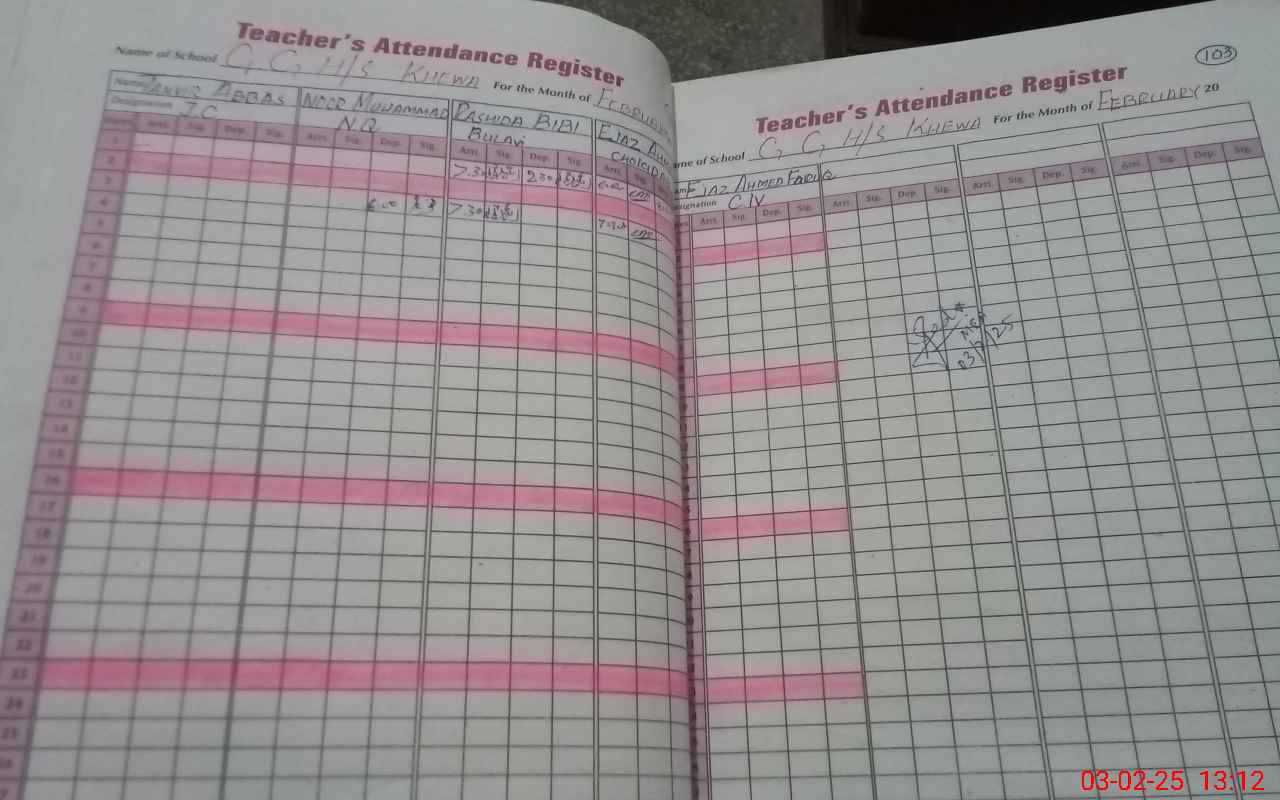 Teacher's Attendance Register
Name of School G G H/S KHEWA For the Month of FEBRUARY
Name TANVIR ABBAS NOOR MUHAMMAD RASHIDA BIBI EJAZ
Designation J.C N.Q BULAVI
Arri. Sig. Dep. Sig. Arri. Sig. Dep. Sig. Arri. Sig. Dep. Sig. Arri. Sig.
1 7.30 2.30
2
3 7.30
4
5
6
7
8
9
10
11
12
13
14
15
16
17
18
19
20
21
22
23
24
25
26
103
Teacher's Attendance Register
me of School G G H/S KHEWA For the Month of FEBRUARY 20
EJAZ AHMED FARUQ
signation C.IV
Arri. Sig. Dep. Sig. Arri. Sig. Dep. Sig. Arri. Sig. Dep. Sig. Arri. Sig. Dep. Sig.
MEA
03/2/25
03-02-25 13:12